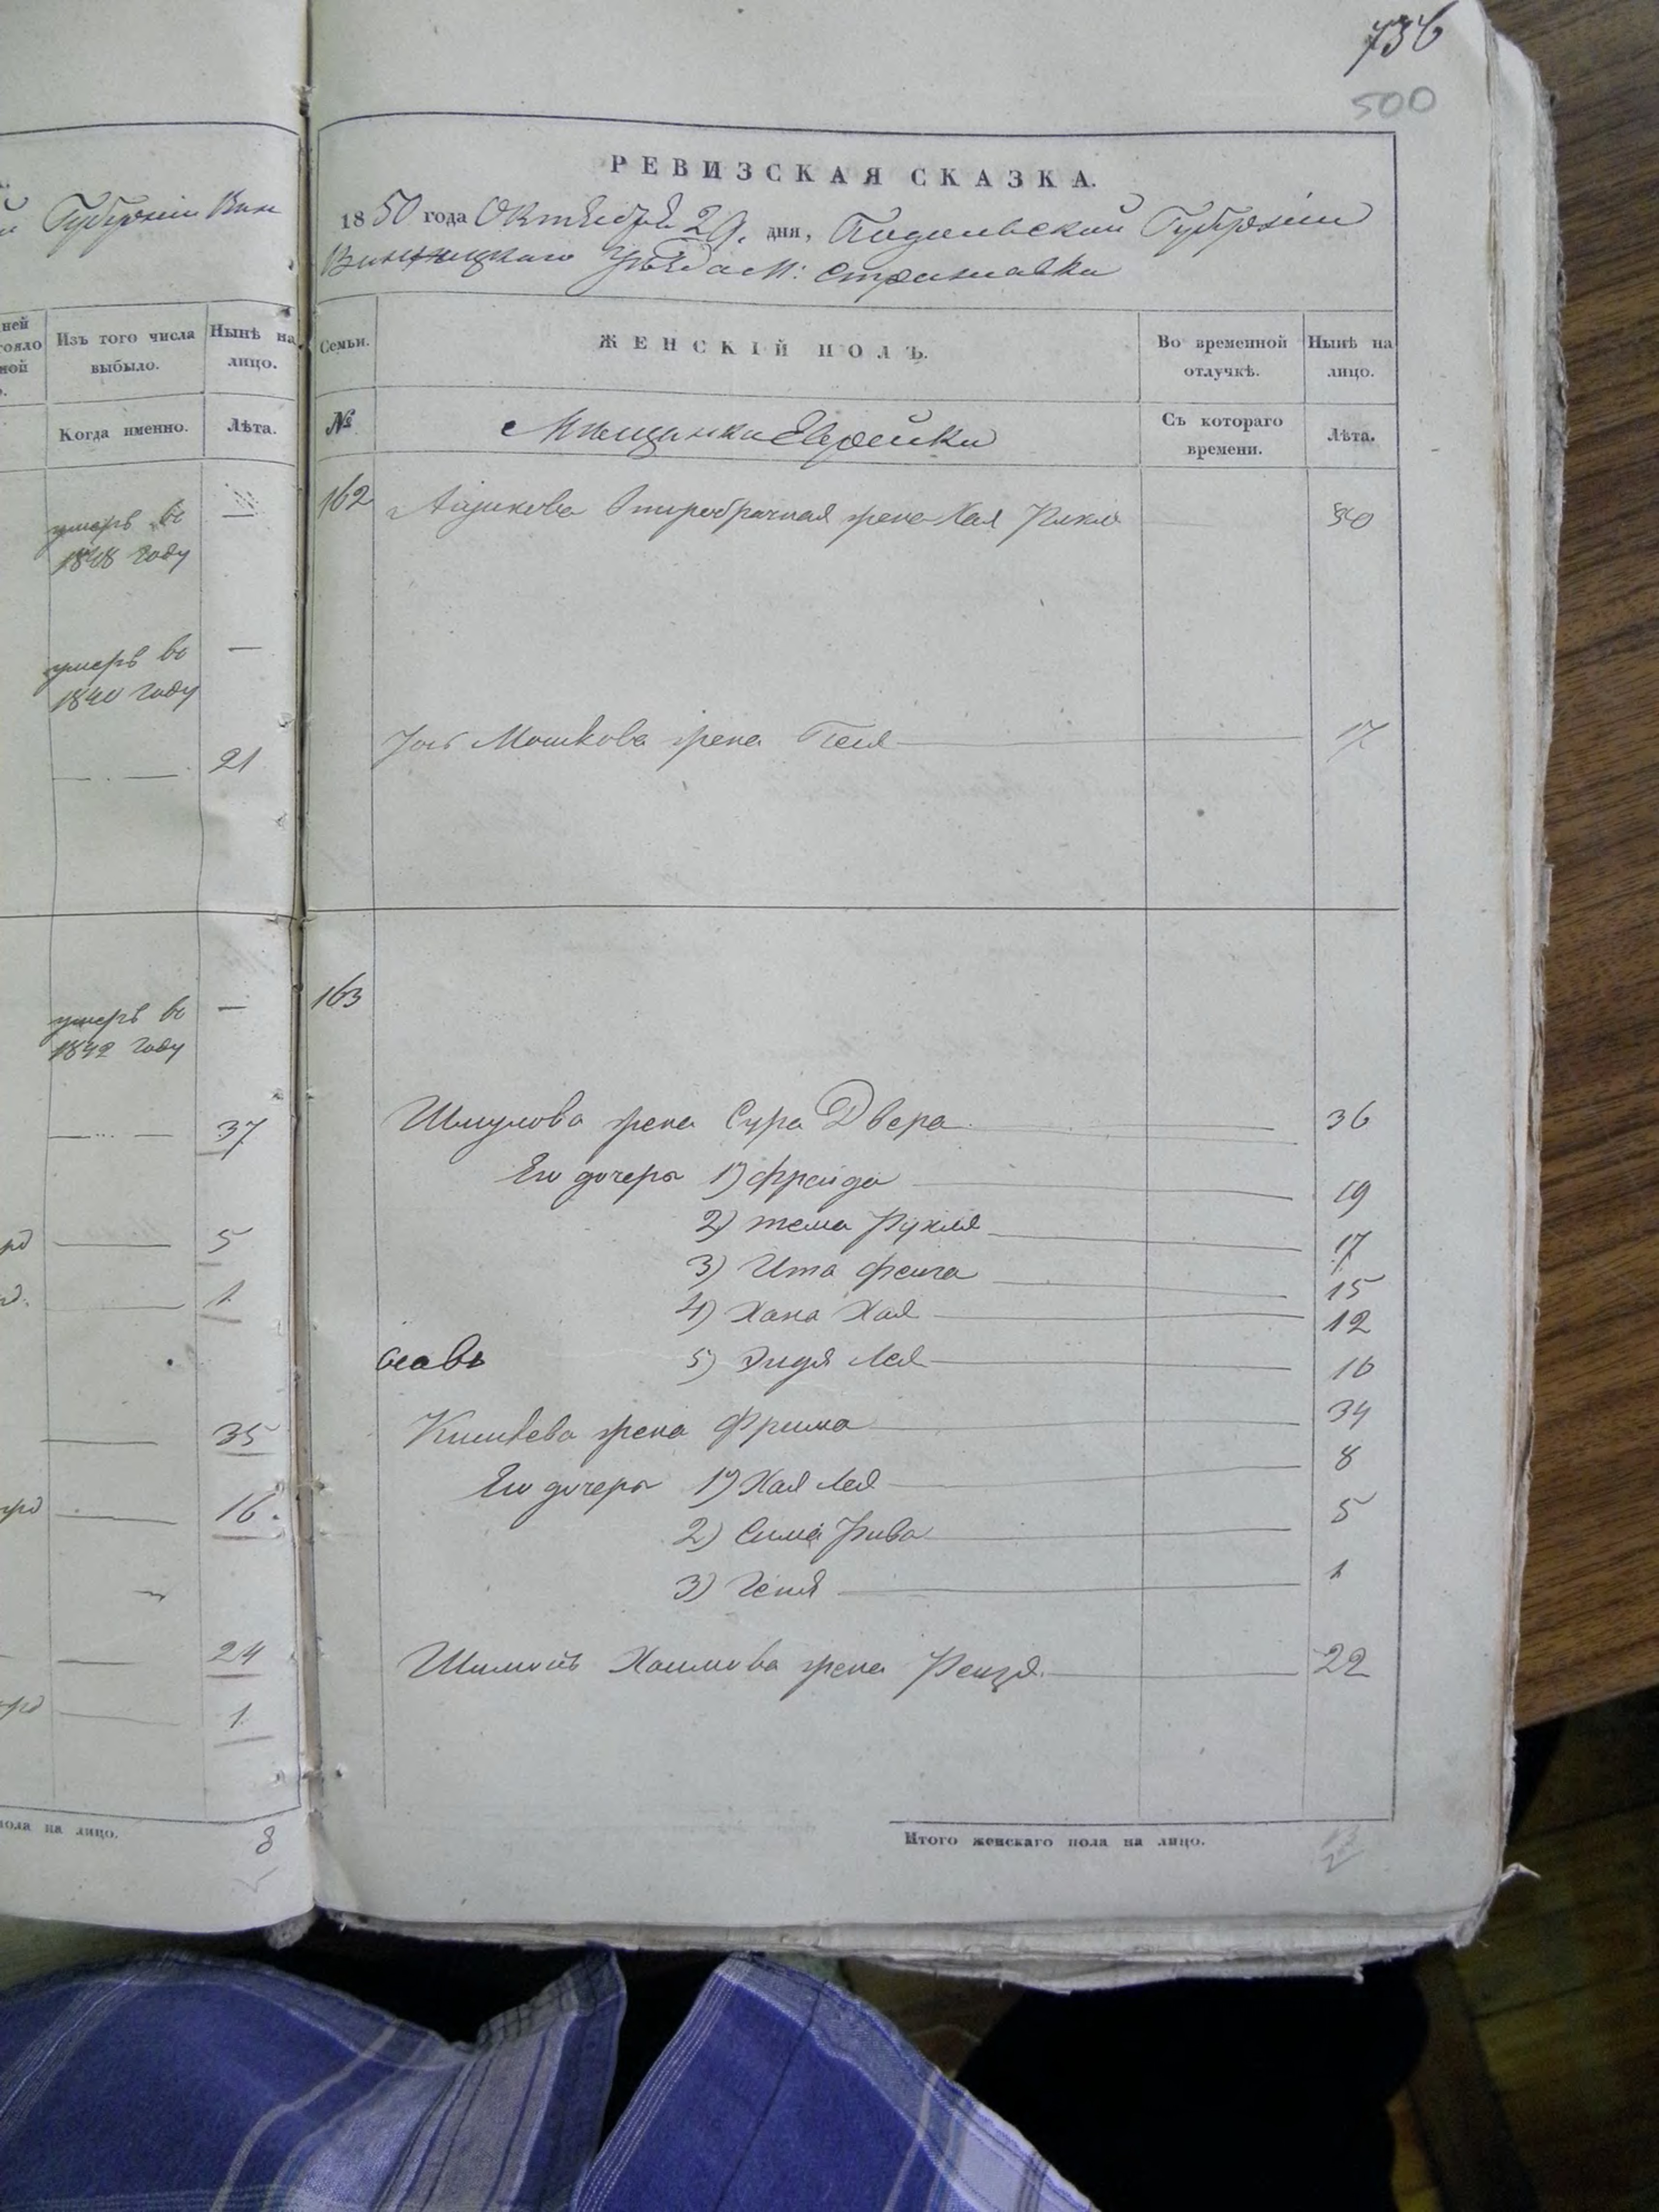 736
500
Губерніи Вин
ней
Изъ того числа выбыло.
Нынѣ на лицо.
Когда именно.
Лѣта.
умеръ въ
1848 году
—
умеръ во
1840 году
—
21
умеръ во
1842 году
—
37
5
1
35
16
24
1
пола на лицо.
8
РЕВИЗСКАЯ СКАЗКА.
1850 года Октября 29. дня, Подольской Губерніи
Винницкаго Уѣзда М: Стрижавки
Семьи.
ЖЕНСКІЙ ПОЛЪ.
Во временной отлучкѣ.
Нынѣ на лицо.
№
Мѣщанки Еврейки
Съ котораго времени.
Лѣта.
162 Второбрачная жена Хая 50
Мошкова жена 17
163
Шмулова жена Сура Двера 36
Его дочери 1) Фрейда 19
2) тема Рухля 17
3) Ита Фейга 15
4) Хана Хая 12
5) Эидя Лея 10
жена Фрима 34
Его дочери 1) Хая Лея 8
2) Сима Рива 5
3) Геня 1
Хаимова жена Рейзя 22
Итого женскаго пола на лицо.